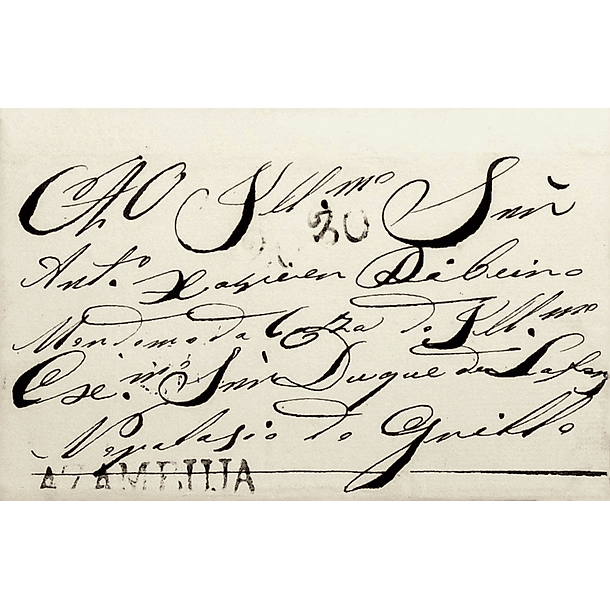 AO Illmo Snr
20
Anto. Xavier Ribeiro
Mordomo da Caza do Illmo
Exc.mo Snr Duque de Lafões
No palasio do Grillo
AZAMBUJA